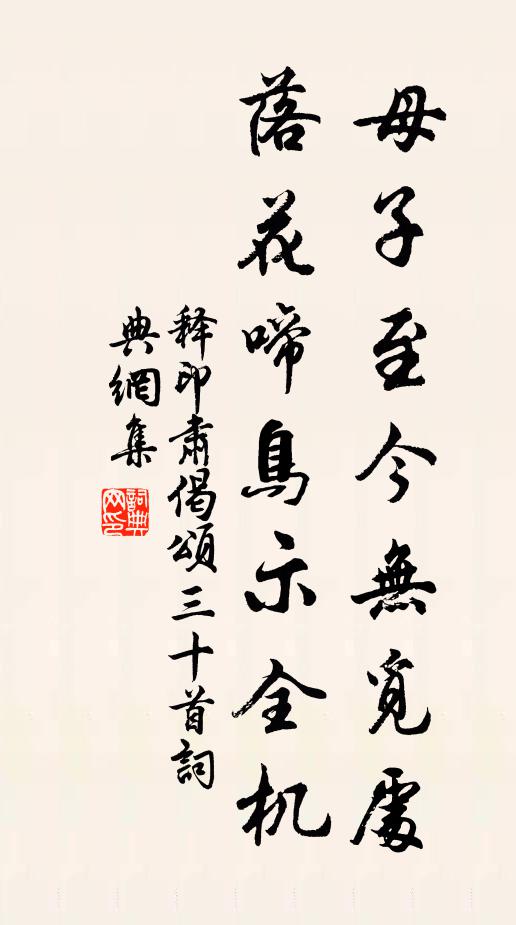 母子至今無覓處
落花啼鳥示全机
释印肃偈頌三十首詞
典網集
詞典网印